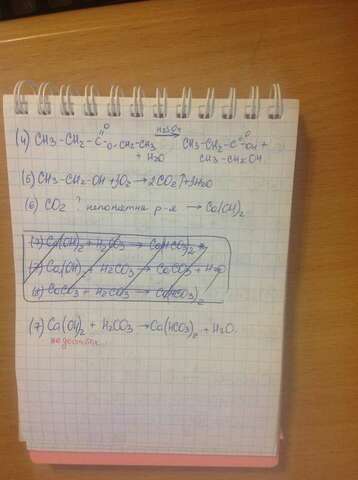 (4) CH3-CH2-C=O-O-CH2-CH3 + H2O H2SO4→ CH3-CH2-C=O-OH + CH3-CH2OH
(5) CH3-CH2-OH + 3O2 → 2CO2↑ + 3H2O
(6) CO2 ? непонятна р-я → Ca(OH)2
(7) Ca(OH)2 + H2CO3 → Ca(HCO3)2
(7) Ca(OH)2 + H2CO3 → CaCO3 + H2O
(8) CaCO3 + H2CO3 → Ca(HCO3)2
(7) Ca(OH)2 + H2CO3 → Ca(HCO3)2 + H2O.